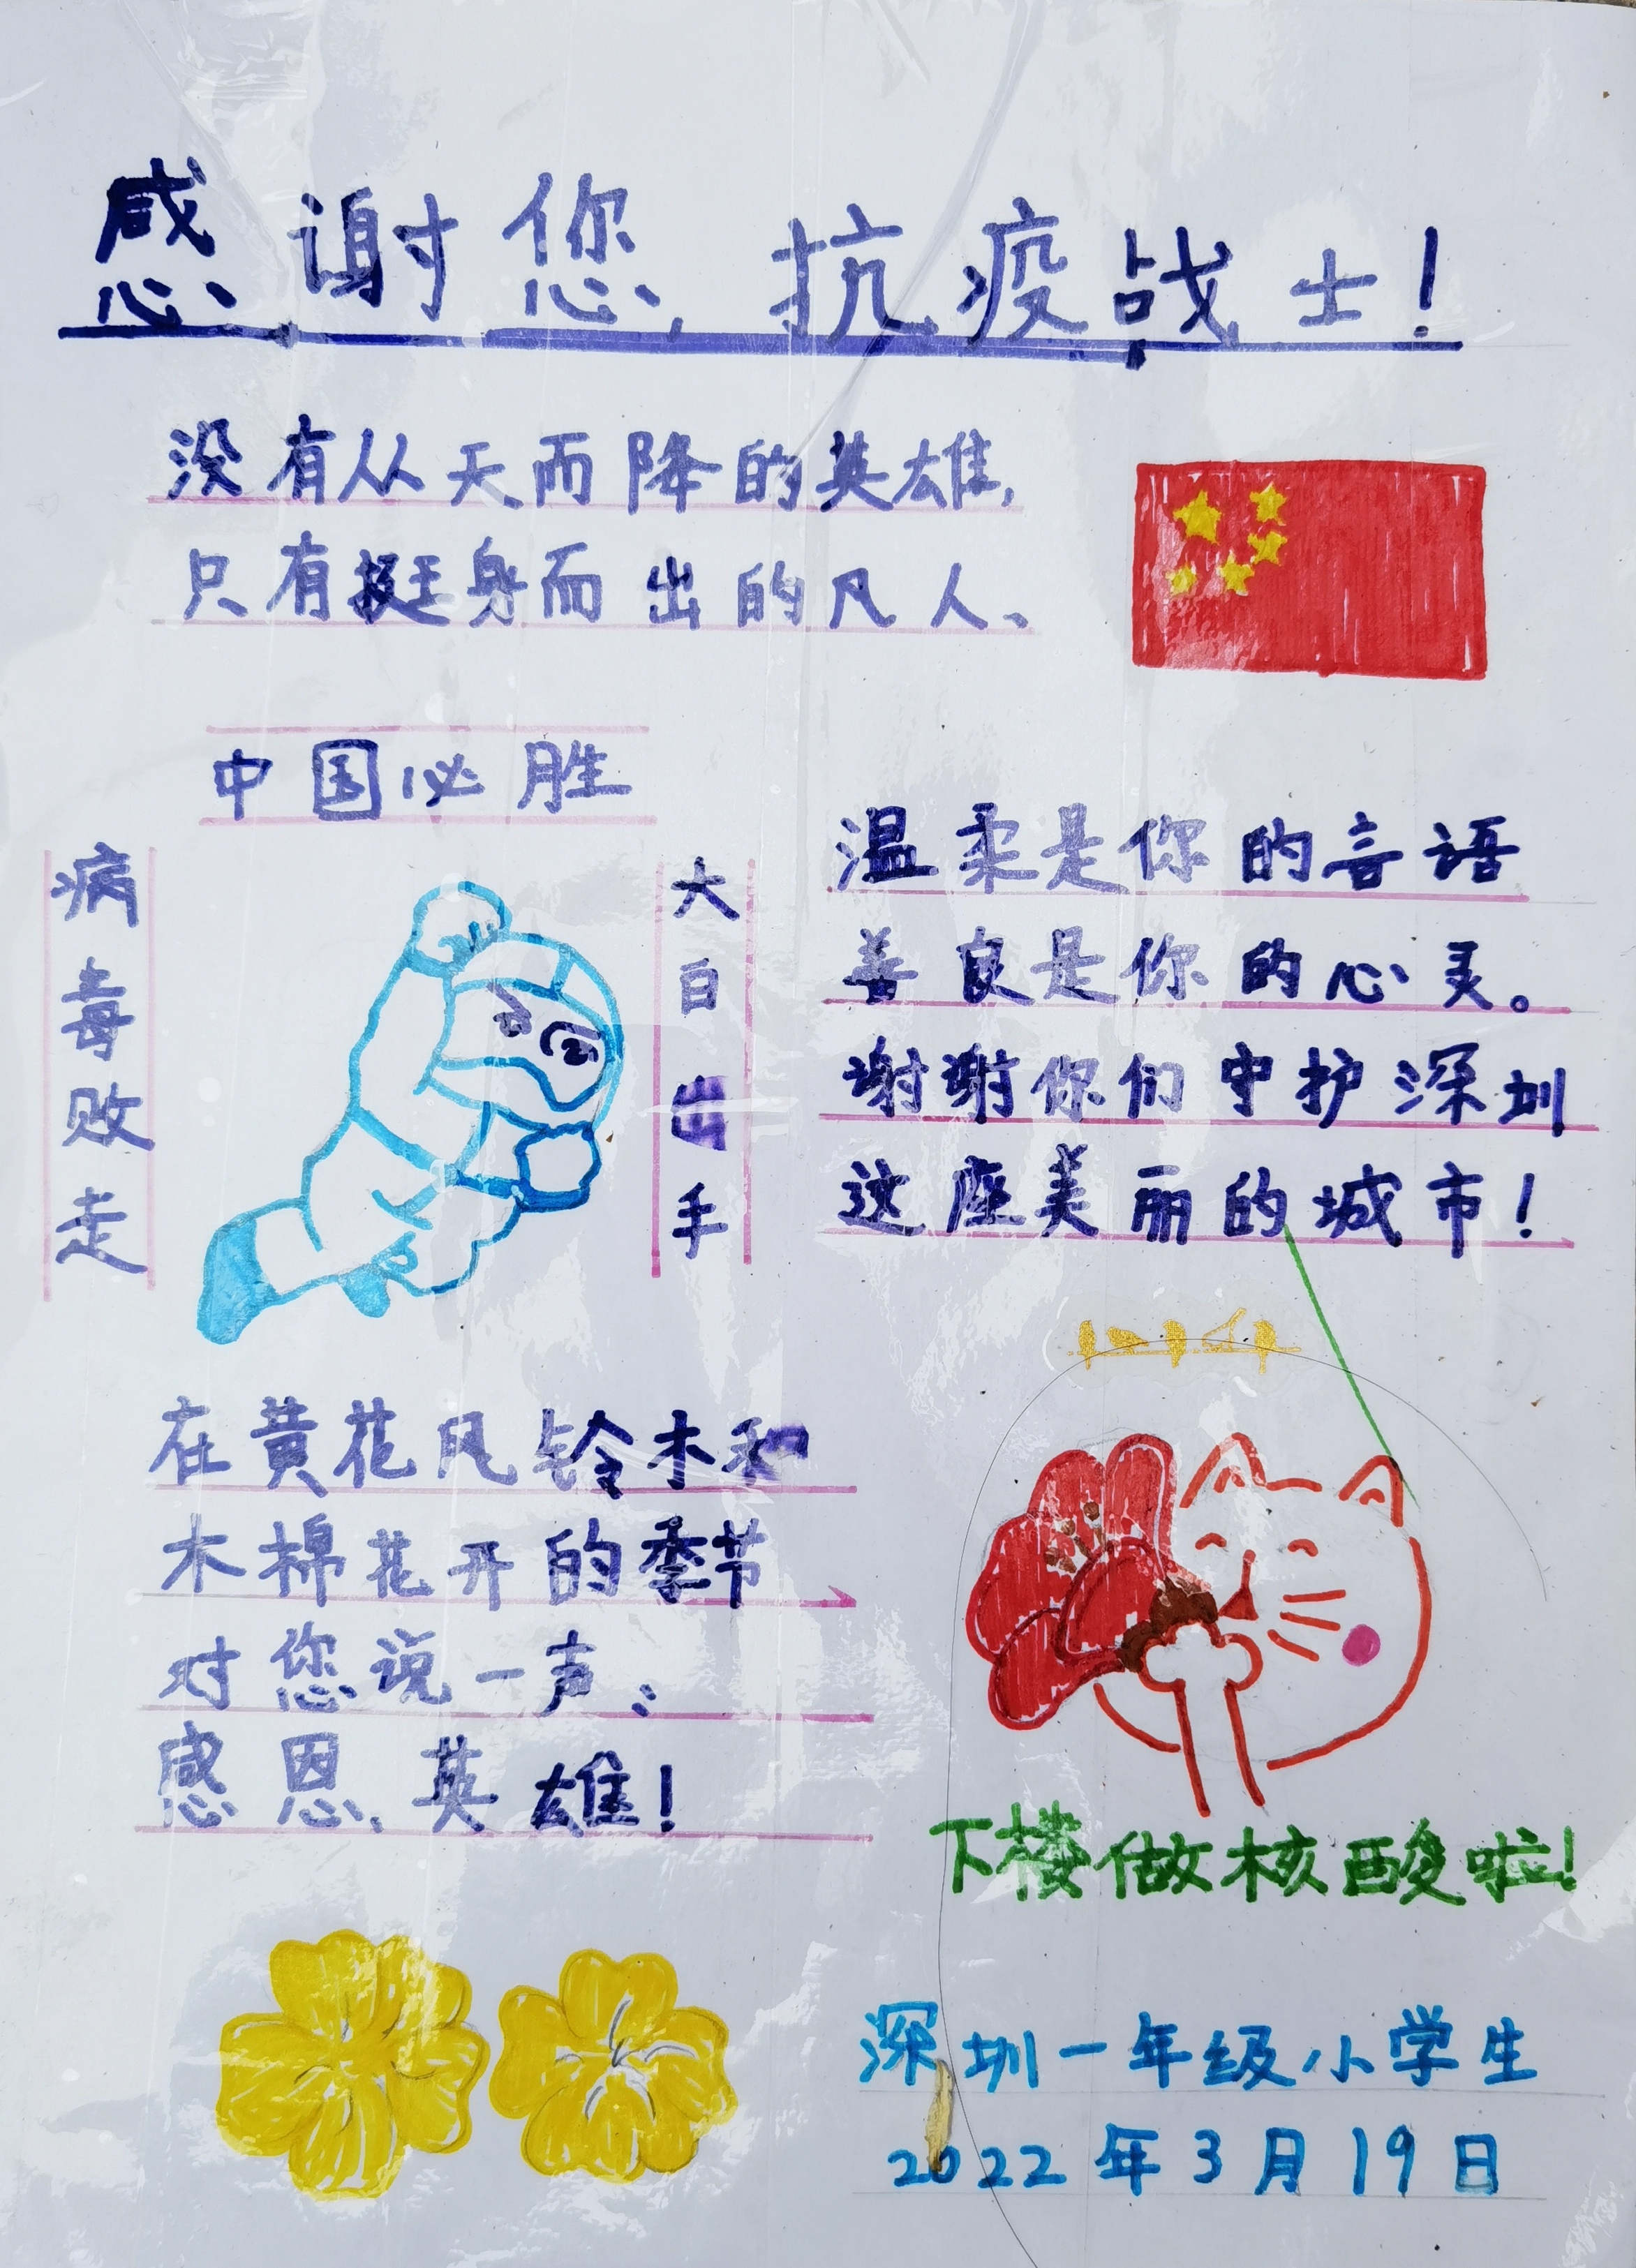 感谢您,抗疫战士!
没有从天而降的英雄,
只有挺身而出的凡人、
中国必胜
病毒败走
大白出手
温柔是你的言语
善良是你的心灵。
谢谢你们守护深圳
这座美丽的城市!
在黄花风铃木和
木棉花开的季节
对您说一声:
感恩、英雄!
下楼做核酸啦!
深圳一年级小学生
2022年3月19日